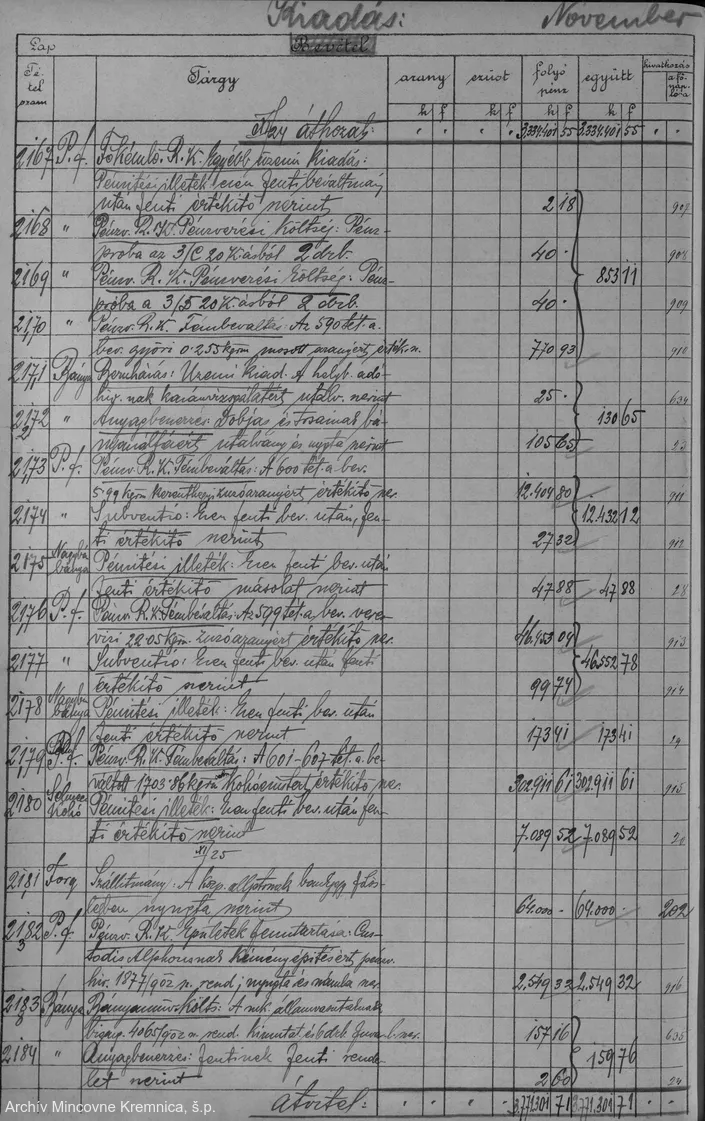 Kiadás: November
Bevétel
Lap
Tétel szám Tárgy arany ezüst folyó pénz együtt hivatkozás a főnaplóra
k f k f k f k f
XI/24 áthozat: 3,334.401 55 3,334.401 55
2167 P.f. Főkémlő. R. K. Egyébb üzemi Kiadás:
Pénzítési illeték ezen fenti beváltmány
után fenti értékítő szerint 2 18 907
2168 " Pénzv. R. K. Pénzverési költség: Pénz-
próba az 3/C 20 K.ásból 2 drb. 40 · 908
2169 " Pénzv. R. K. Pénzverési költség: Pénz- 853 11
próba a 3/5 20 K.ásból 2 drb. 40 · 909
2170 " Pénzv. R. K. Fémbeváltás: Az 590 tét. a.
bev. győri 0.255 kgrm mosott aranyért, érték. sz. 770 93 910
2171 Bánya Üzemi kiad. A helyb. adó-
hiv. nak utalv. szerint 25 · 634
2172 " Anyagbeszerzés: és társainak 130 65
utalvány és nyugta szerint 105 65 23
2173 P.f. Pénzv. R. K. Fémbeváltás: A 600 tét. a. bev.
5.99 kgrm zúzóaranyért értékítő sz. 12.404 80 911
2174 " Subventio: Ezen fenti bev. után, fen- 12.432 12
ti értékítő szerint 27 32 912
2175 Nagybánya Pénzítési illeték: Ezen fenti bev. után
fenti értékítő másolat szerint 47 88 47 88 28
2176 P.f. Pénzv. R. K. Fémbeváltás: Az 599 tét. a. bev. veres-
vízi 22.05 kgrm. zúzóaranyért értékítő sz. 46.453 04 913
2177 " Subventio: Ezen fenti bev. után fenti 46.552 78
értékítő szerint 99 74 914
2178 Nagybánya Pénzítési illeték: Ezen fenti bev. után
fenti értékítő szerint 173 41 173 41 29
2179 P.f. Pénzv. R. K. Fémbeváltás: A 601-607 tét. a. be-
váltott 1703.86 kgrm kohóezüstért értékítő sz. 302.911 61 302.911 61 915
2180 Selmecz Kohó Pénzítési illeték: Ezen fenti bev. után fen-
ti értékítő szerint 7.089 52 7.089 52 20
XI/25
2181 Forg. Szállítmány: A közp. állptrnak
nyugta szerint 64.000 · 64.000 · 202
2182 P.f. Pénzv. R. K. Épületek fenntartása: Cus-
todis Alphonsnak Kéményépítésért, pénzv.
hiv. 1877/902 sz. rend. nyugta és számla sz. 2.549 32 2.549 32 916
2183 Bánya Bányaműv. költs: A m.k. államvasutaknak
4065/902 sz. rend. kimutat. és 6 drb. sz. 157 16 635
2184 " Anyagbeszerzés: Fentinek fenti rende- 159 76
let szerint 2 60 24
Átvitel: 3,771.301 71 3,771.301 71
Archív Mincovne Kremnica, š.p.